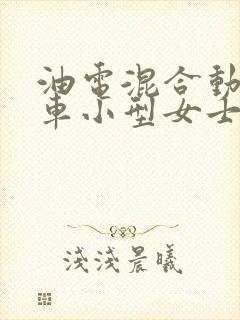 油電混合動
車小型女士
淺淺晨曦